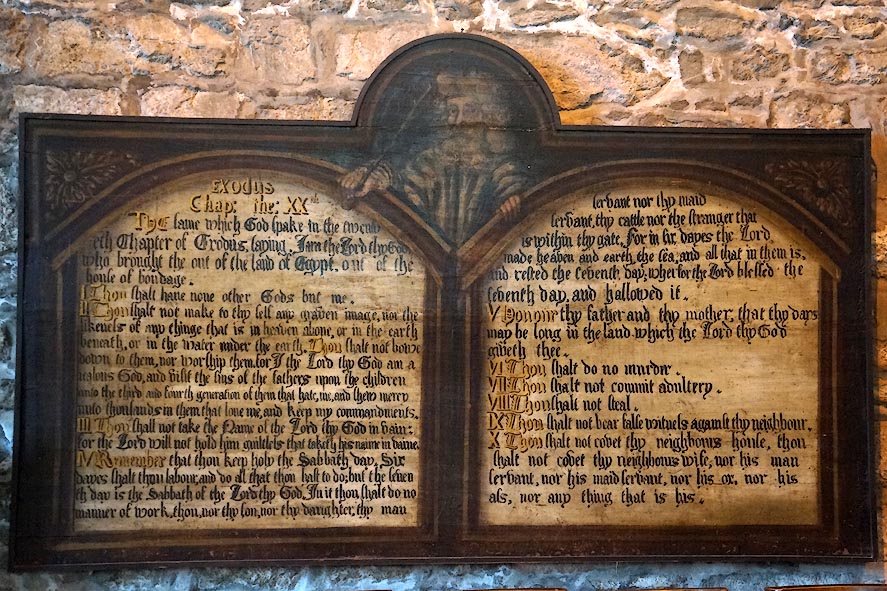 EXODUS
Chap: the: XXth
THE same which God spake in the twenty
eth Chapter of Exodus, saying, I am the Lord thy God
who brought the out of the land of Egypt, out of the
house of bondage.
I Thou shalt haue none other Gods but me.
II Thou shalt not make to thy self any graven image, nor the
likenes of any thinge that is in heaven aboue, or in the earth
beneath, or in the water under the earth. Thou shalt not bowe
down to them, nor worship them, for I the Lord thy God am a
iealous God, and visit the sins of the fathers upon the children
unto the third and fourth generation of them that hate, me, and shew mercy
unto thousands in them that loue me, and keep my commandments.
III Thou shalt not take the Name of the Lord thy God in vain:
for the Lord will not hold him guiltles that taketh his name in vaine.
IV Remember that thou keep holy the Sabbath day, Six
dayes shalt thou labour, and do all that thou hast to do; but the seuen
th day is the Sabbath of the Lord thy God, In it thou, shalt do no
manner of work, thou, nor thy son, nor thy daughter, thy man
servant nor thy maid
servant, thy cattle nor the stranger that
is within thy gate. For in six dayes the Lord
made heaven and earth, the sea, and all that in them is,
and rested the seventh day, wherfor the Lord blessed the
seventh day, and hallowed it.
V Honour thy father and thy mother, that thy days
may be long in the land which the Lord thy God
giveth thee.
VI Thou shalt do no murder.
VII Thou shalt not commit adultery.
VIII Thou shalt not steal.
IX Thou shalt not bear false witnes against thy neighbour.
X Thou shalt not covet thy neighbours house, thou
shalt not covet thy neighbours wife, nor his man
servant, nor his maid servant, nor his ox, nor his
ass, nor any thing that is his.